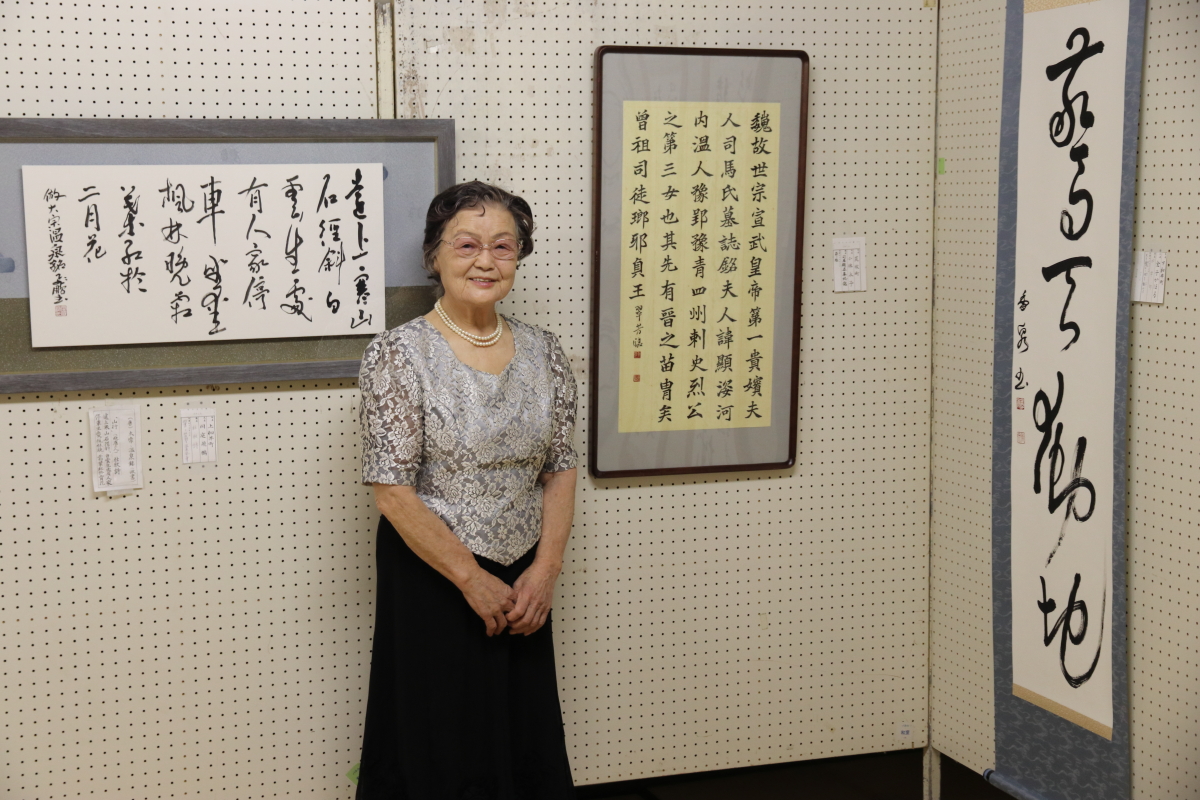 遠上寒山
石徑斜白
雲生處
有人家停
車坐愛
楓林晩霜
葉紅於
二月花
倣大宗温泉銘
魏故世宗宣武皇帝第一貴嬪夫
人司馬氏墓誌銘夫人諱顯姿河
内温人豫郢豫青四州刺史烈公
之第三女也其先有晉之苗冑矣
曾祖司徒瑯邪貞王 翠芳臨
驚天動地